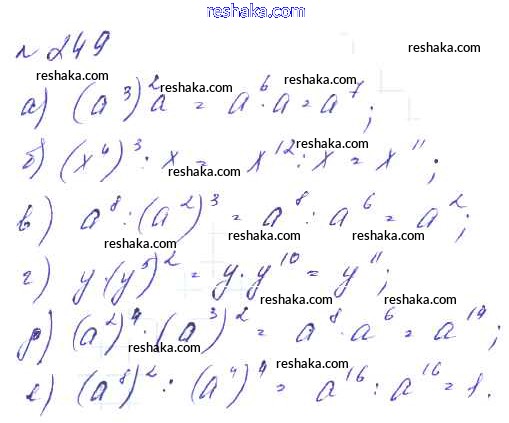 reshaka.com
№ 249
reshaka.com
reshaka.com
reshaka.com
а) (a³)²a = a⁶·a = a⁷;
reshaka.com
reshaka.com
б) (x⁴)³ : x = x¹² : x = x¹¹;
reshaka.com
reshaka.com
в) a⁸ : (a²)³ = a⁸ : a⁶ = a²;
reshaka.com
reshaka.com
г) y·(y⁵)² = y·y¹⁰ = y¹¹;
reshaka.com
reshaka.com
д) (a²)⁴·(a³)² = a⁸·a⁶ = a¹⁴;
reshaka.com
reshaka.com
е) (a⁸)² : (a⁴)⁴ = a¹⁶ : a¹⁶ = 1.
reshaka.com